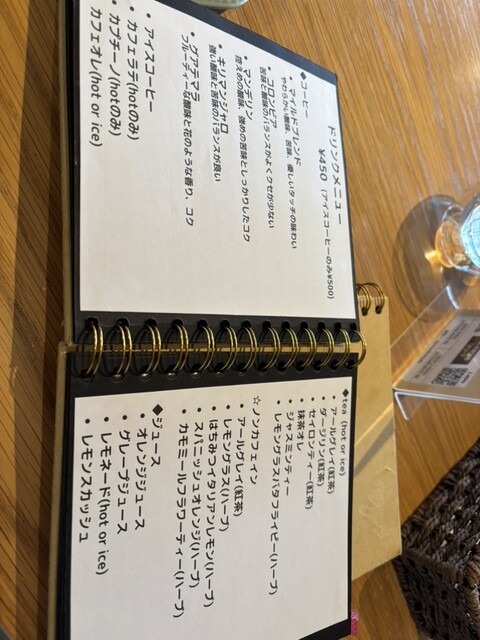 ドリンクメニュー
¥450 (アイスコーヒーのみ¥500)
◆コーヒー
• マイルドブレンド
やわらかい酸味、苦味、優しいタッチの味わい
• コロンビア
苦味と酸味のバランスがよくクセが少ない
• マンデリン
控えめの酸味、強めの苦味としっかりしたコク
• キリマンジャロ
強い酸味と苦味のバランスが良い
• グアテマラ
フルーティーな酸味と花のような香り、コク
• アイスコーヒー
• カフェラテ(hotのみ)
• カプチーノ(hotのみ)
カフェオレ(hot or ice)
◆tea (hot or ice)
• アールグレイ(紅茶)
• ダージリン(紅茶)
• セイロンティー(紅茶)
• 抹茶オレ
• ジャスミンティー
• レモングラスバタフライピー(ハーブ)
☆ノンカフェイン
• アールグレイ(紅茶)
• レモングラス(ハーブ)
• はちみつイタリアンレモン(ハーブ)
• スパニッシュオレンジ(ハーブ)
• カモミールフラワーティー(ハーブ)
◆ジュース
• オレンジジュース
• グレープジュース
• レモネード(hot or ice)
• レモンスカッシュ